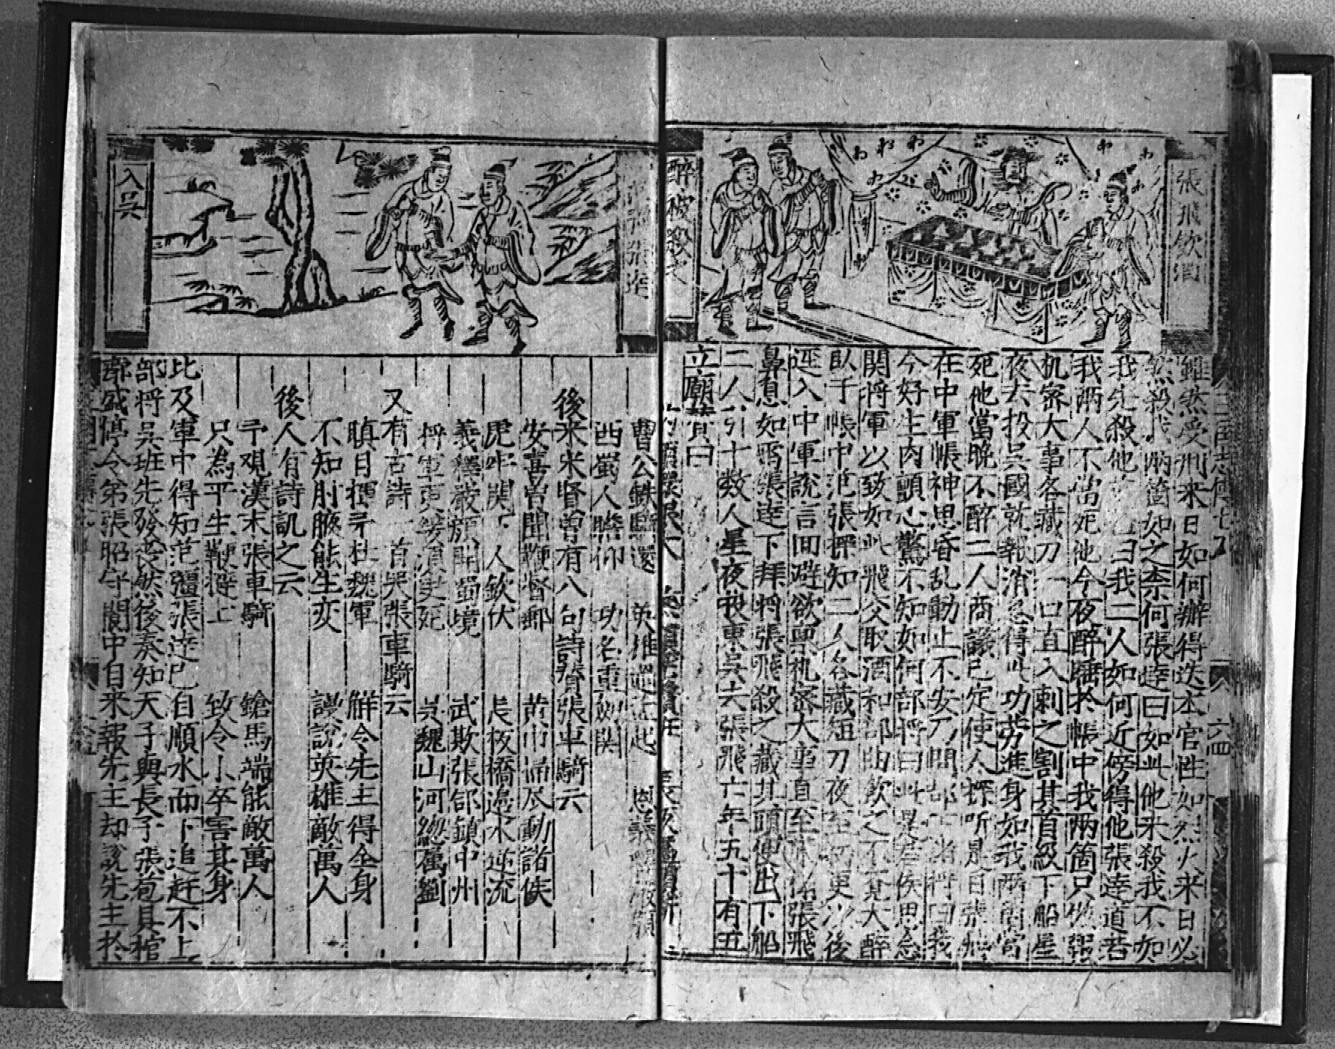 張飛飲酒
醉被殺之
雖然受刑來日如何辦得迭本官性如烈火來日必
然殺我兩箇如之柰何張達曰如此他來殺我不如
我先殺他 曰我二人如何近傍得他張達道若
我兩人不當死他今夜醉臥於帳中我兩箇只做報
机密大事各藏刀一口直入刺之割其首級下船星
夜去投吳國就報消息得此功劳進身如我兩箇當
死他當晚不醉二人商議已定使人探听是日張飛
在中軍帳神思昏乱動止不安乃問部 將曰我
今好生肉顫心驚不知如何部將曰此是君侯思念
関將軍以致如此飛父取酒和部曲飲之不覚大醉
臥于帳中范張探知二人各藏短刀夜至初更以後
逕入中軍說言囬避欲稟机密大事直至床 張飛
鼻息如雷張達下拜將張飛殺之藏其頭便出下船
二人引十數人星夜投東吳去張飛亡年五十有五
立廟賛曰
入吳
曹公鉄騎還
西蜀人瞻仰 功名重
後來米賢曾有八句詩賛張車騎云
安喜曽聞鞭督郵 黄巾 尽動諸侯
虎牢関下人欽伏 長板橋邊水逆流
義釋嚴顔開蜀境 武欺張郃鎮中州
將軍更緩須更死 吳魏山河總屬劉
又有古詩一首哭張車騎云
瞋目揮矛杜魏軍 解令先主得全身
不知肘腋能生変 謾說英雄敵萬人
後人有詩訊之云
予观漢末張車騎 鎗馬端能敵萬人
只為平生鞭撻上 致令小卒害其身
比及軍中得知范疆張達已自順水而下追赶不上
部將吳班先發丧然後奏知天子與長子張苞具棺
郭盛停令弟張昭守閬中自來報先主却說先主於